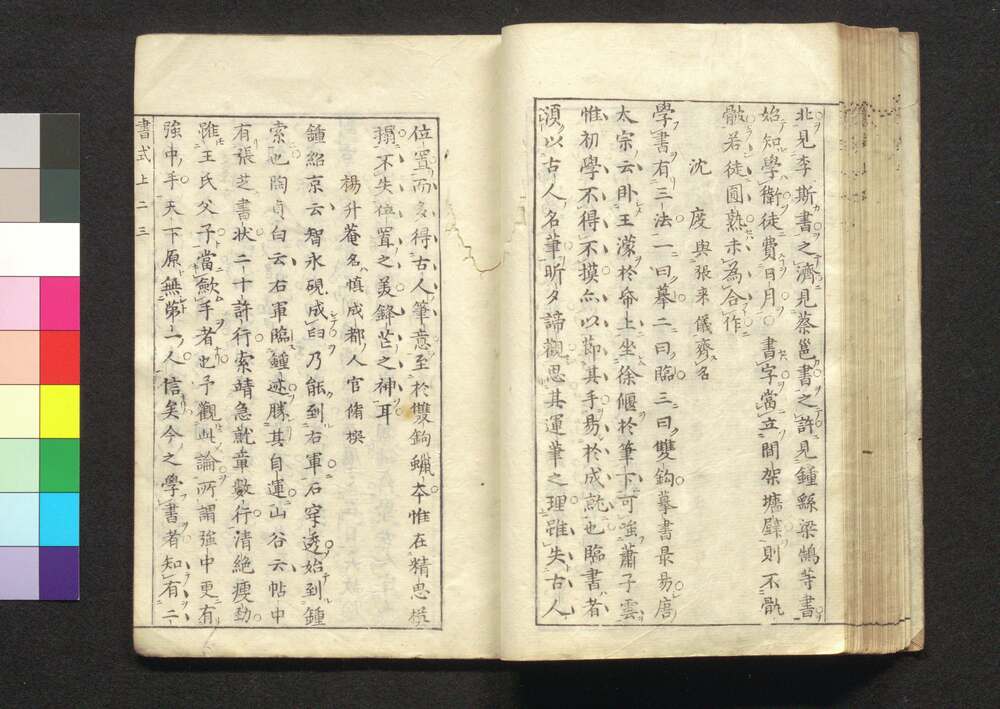 北見李斯書之濟見蔡邕書之許見鍾繇梁鵠等書
始知學衛徒費日月○書字當立間架墻壁則不骩
骸若徒圓熟未為合作
沈度與張来儀齊名
學書有三法一曰摹二曰臨三曰雙鈎摹書最易唐
太宗云臥王濛於帋上坐徐偃於筆下可嗤蕭子雲
惟初學不得不摸亦以節其手易於成就也臨書者
須以古人名筆昕夕諦觀思其運筆之理雖失古人
位置而多得古人筆意至於雙鉤蠟本惟在精思
搨不失位置之美鋒芒之神耳
楊升菴名慎成都人官脩撰
鍾紹京云智永硯成臼乃能到右軍石穿透始到鍾
索也陶貞白云右軍臨鍾迹勝其自運山谷云帖中
有張芝書状二十許行索靖急就章數行清絶瘦劲
雖王氏父子當歛手者也予觀此論所謂強中更有
強中手天下原無第一人信矣今之學書者知有二
書式上二三